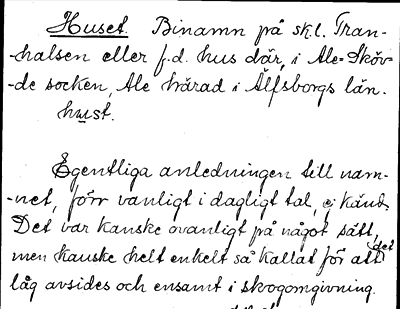 Huset. Binamn på sk.l. Tran-
-halsen eller f.d. hus där, i Ale-Sköv-
-de socken, Ale härad i Älfsborgs län.
hust.
Egentliga anledningen till nam-
-net, förr vanligt i dagligt tal, ej känd.
Det var kanske ovanligt på något sätt,
men kanske helt enkelt så kallat för att det
låg avsides och ensamt i skogomgivning.